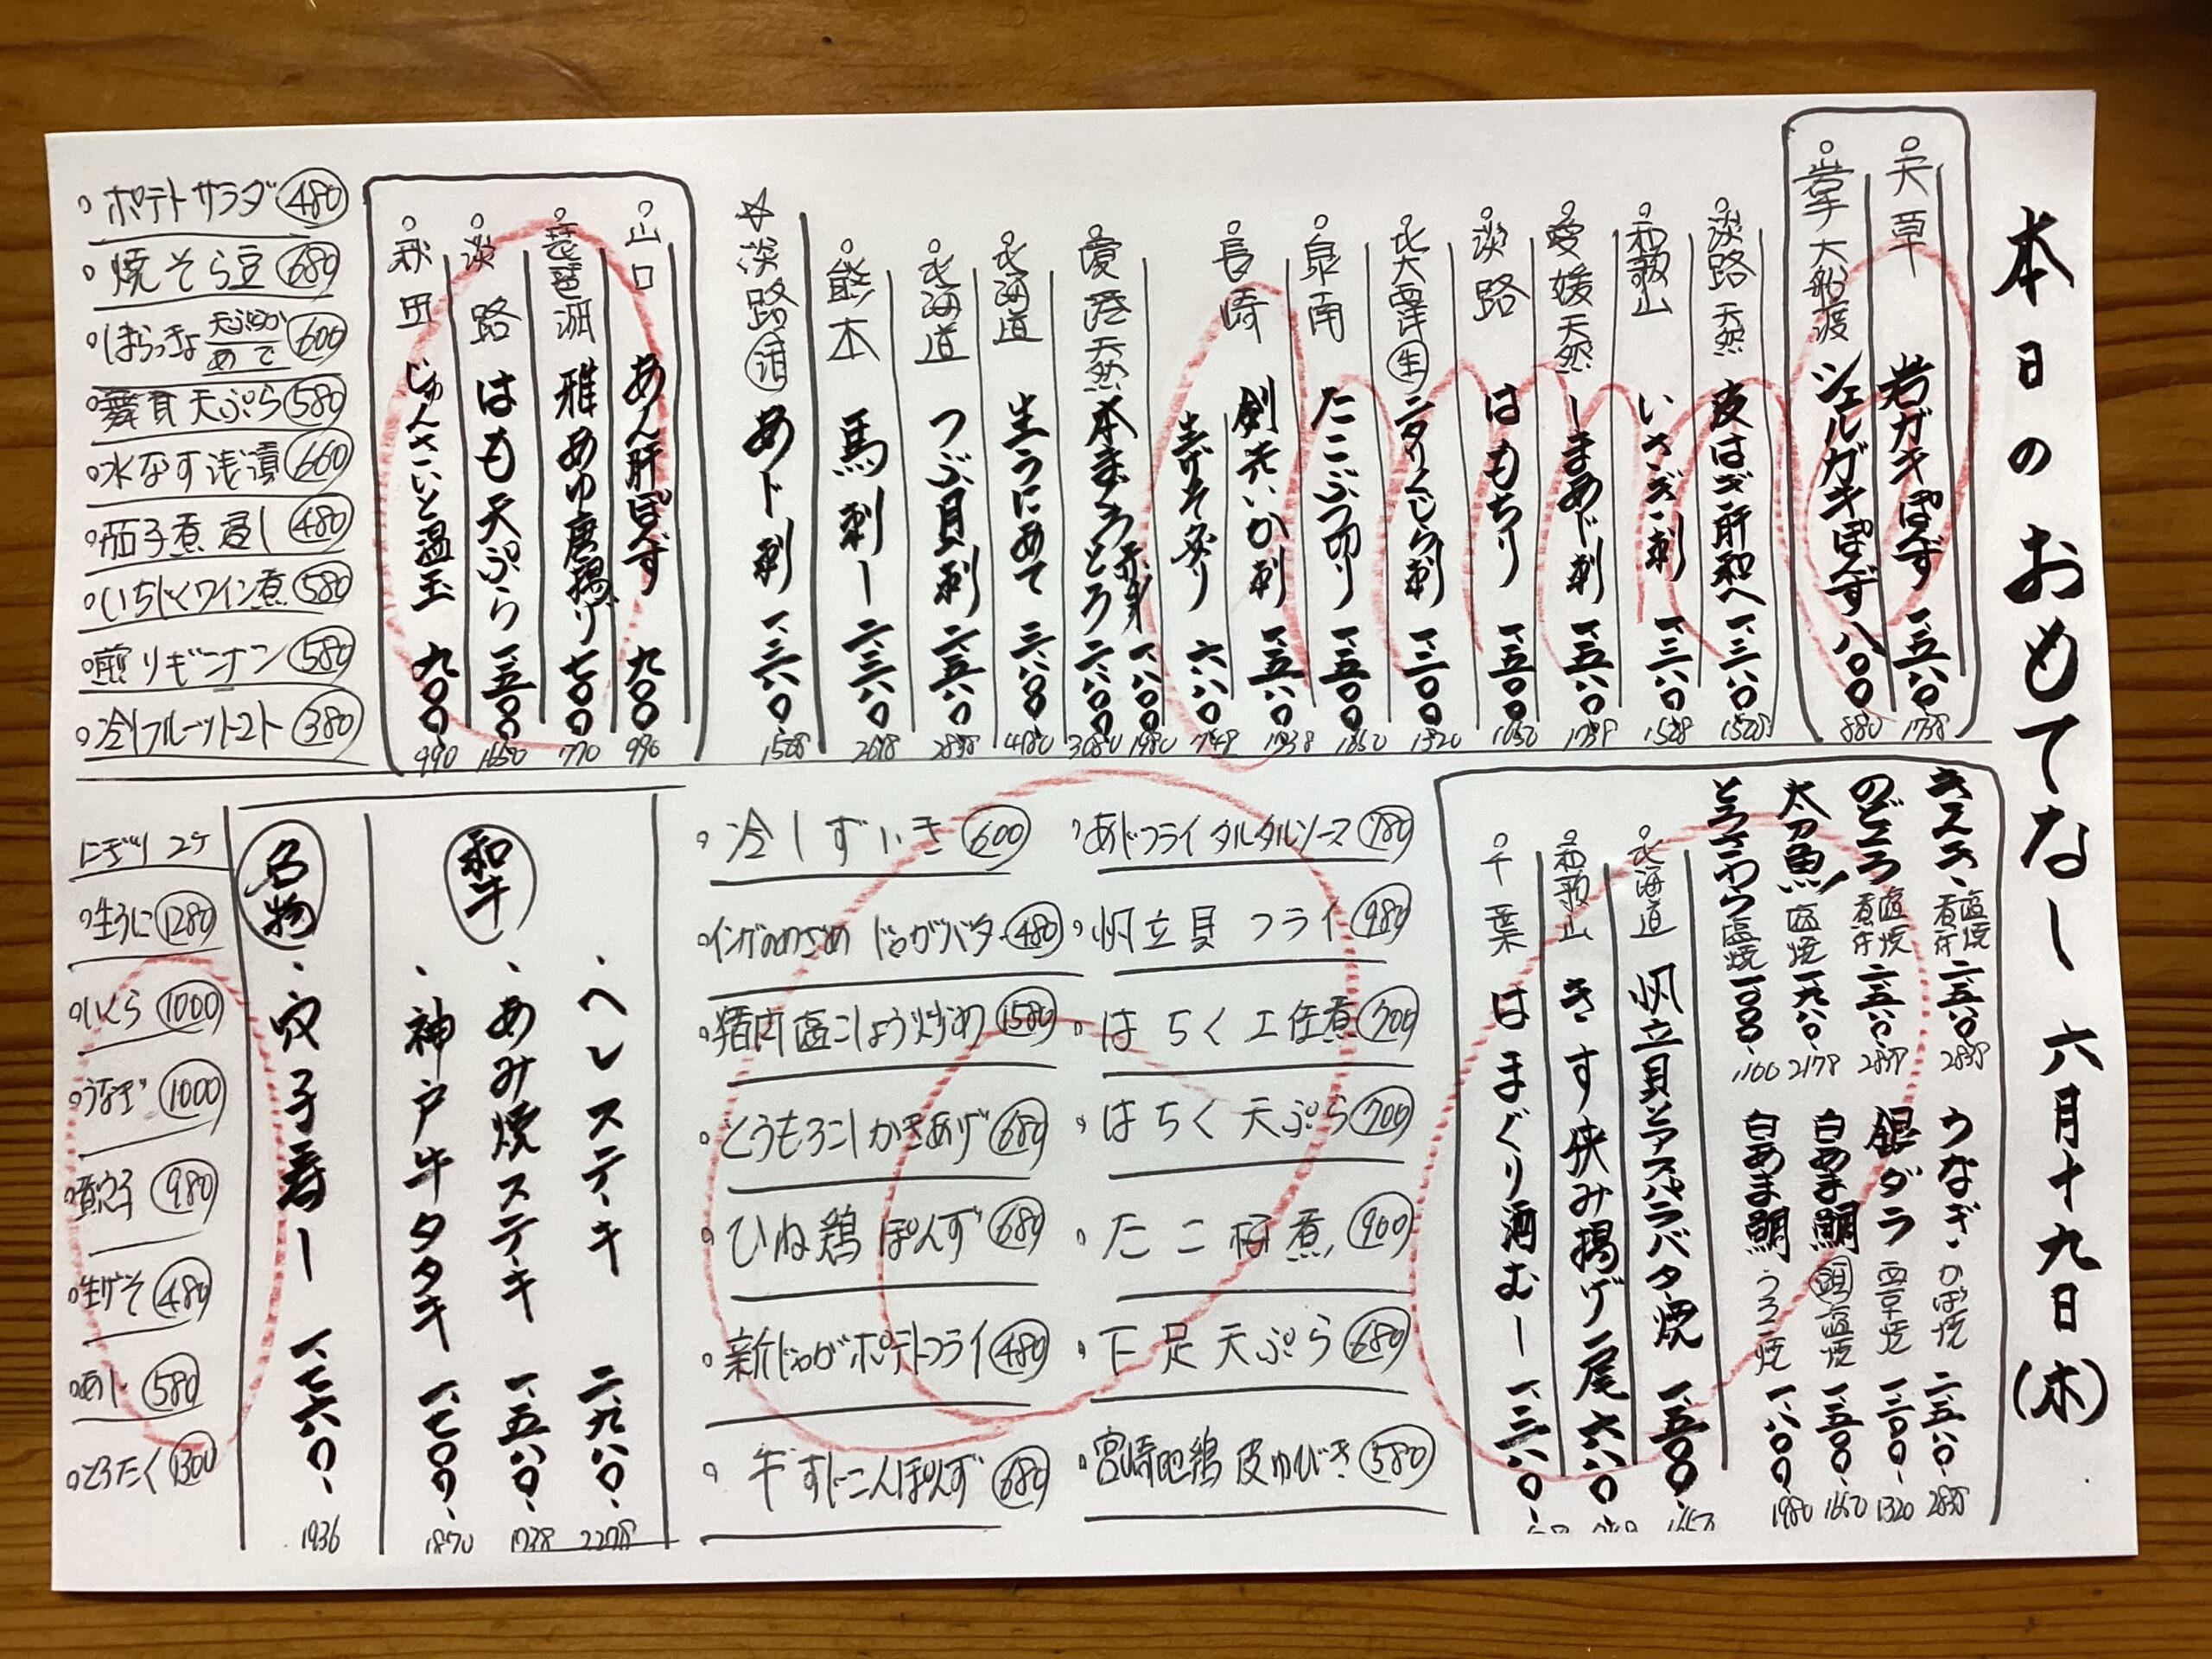 本日のおもてなし 六月十九日(木)
天草 岩ガキぽんず 一、五八〇 1738
岩手大船渡 シェルガキぽんず 八〇〇 880
淡路天然 皮はぎ肝和へ 一、三八〇 1508
和歌山 いさぎ刺 一、三八〇 1508
愛媛天然 しまあじ刺 一、五八〇 1738
淡路 はもちり 一、五〇〇 1650
北大西洋 生 ニタリくじら刺 一、二〇〇 1320
泉南 たこぶつ切り 一、五〇〇 1650
長崎 剣先いか刺 一、五八〇 1738
生げそ炙り 六八〇 748
天然本まぐろ 赤身 一、八〇〇 1980
とろ 二、八〇〇 3080
北海道 生うにあて 三、八〇〇 4180
北海道 つぶ貝刺 二、五八〇 2838
熊本 馬刺し 二、三八〇 2618
☆淡路 活 あじ刺 一、三八〇 1508
山口 あん肝ぽんず 九〇〇 990
琵琶湖 稚あゆ唐揚げ 七〇〇 770
淡路 はも天ぷら 一、五〇〇 1650
秋田 じゅんさいと温玉 九〇〇 990
ポテトサラダ 480
焼そら豆 680
天ぷら 600
舞茸天ぷら 580
水なす浅漬 660
茄子煮浸し 480
いちじくワイン煮 580
煎りギンナン 580
冷しフルーツトマト 380
キスキ 塩焼 煮付 二、五八〇 2838
のどぐろ 塩焼 煮付 二、五八〇 2838
太刀魚 塩焼 一、九八〇 2178
とろさわら 塩焼 一、〇〇〇 1100
うなぎ かば焼 二、五八〇 2838
銀ダラ 西京焼 一、二〇〇 1320
白あま鯛 頭 塩焼 一、五〇〇 1650
白あま鯛 うろこ焼 一、八〇〇 1980
北海道 帆立貝とアスパラバター焼 一、五〇〇 1650
和歌山 きす挟み揚げ二尾 六八〇
千葉 はまぐり酒むし 一、三八〇
あじフライタルタルソース 780
帆立貝フライ 980
はちく土佐煮 700
はちく天ぷら 700
たこ柔煮 900
下足天ぷら 680
宮崎地鶏皮ゆびき 580
冷しずいき 600
480
猪肉塩こしょう炒め 1580
とうもろこしかきあげ 680
ひね鶏ぽんず 680
新じゃがポテトフライ 480
牛すじこんぽんず 680
和牛
ヘレステーキ 二、九八〇
あみ焼ステーキ 一、五八〇 1738
神戸牛タタキ 一、七〇〇 1870
名物
穴子寿し 一、七六〇 1936
にぎり 2ケ
生うに 1280
いくら 1000
うなぎ 1000
煮穴子 980
生げそ 480
あじ 580
とろたく 1300